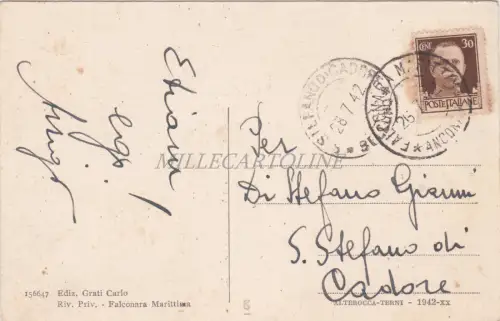 Per
Di Stefano Gianni
S. Stefano di
Cadore
MILLECARTOLINE
156647 Ediz. Grati Carlo
Riv. Priv. - Falconara Marittima
ALTEROCCA-TERNI - 1942-XX
30
POSTE ITALIANE
S. STEFANO DI CADORE
28.7.42
FALCONARA M.
ANCONA
26